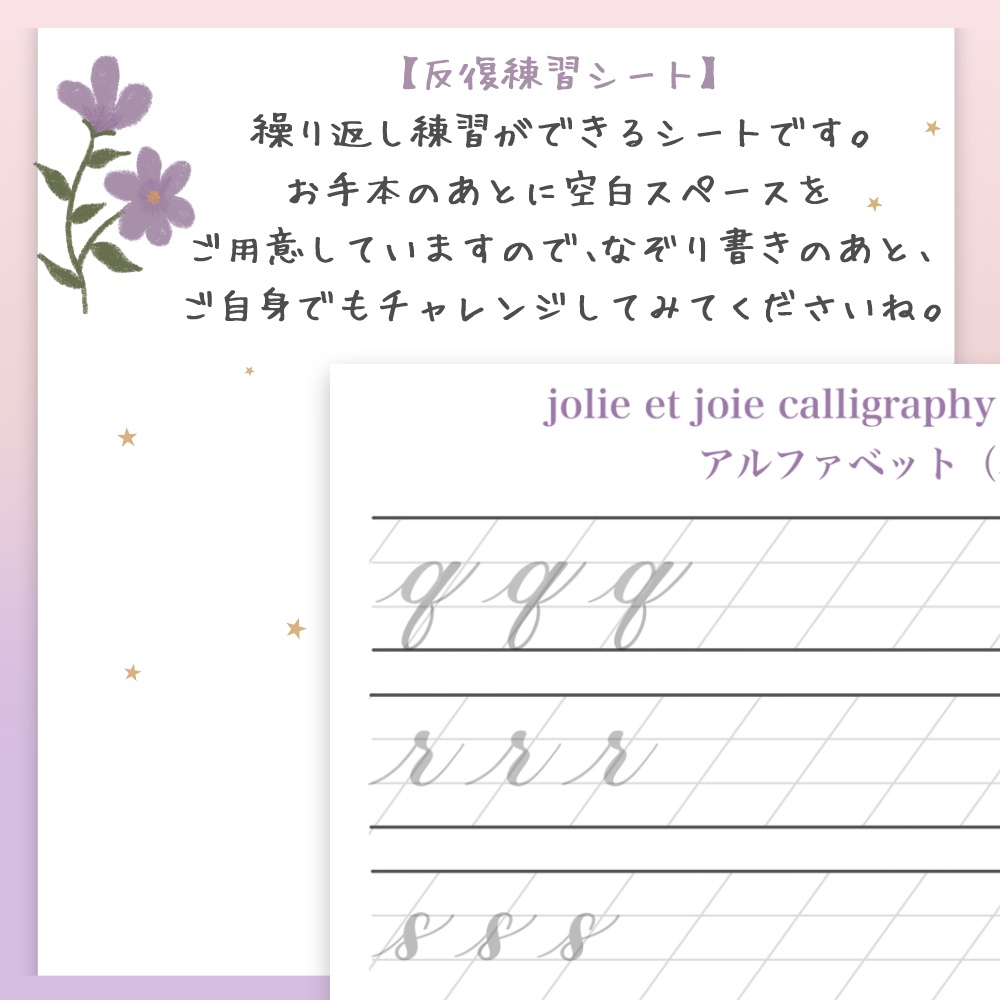 【反復練習シート】
繰り返し練習ができるシートです。
お手本のあとに空白スペースを
ご用意していますので、なぞり書きのあと、
ご自身でもチャレンジしてみてくださいね。
jolie et joie calligraphy
アルファベット（
q q q
r r r
s s s